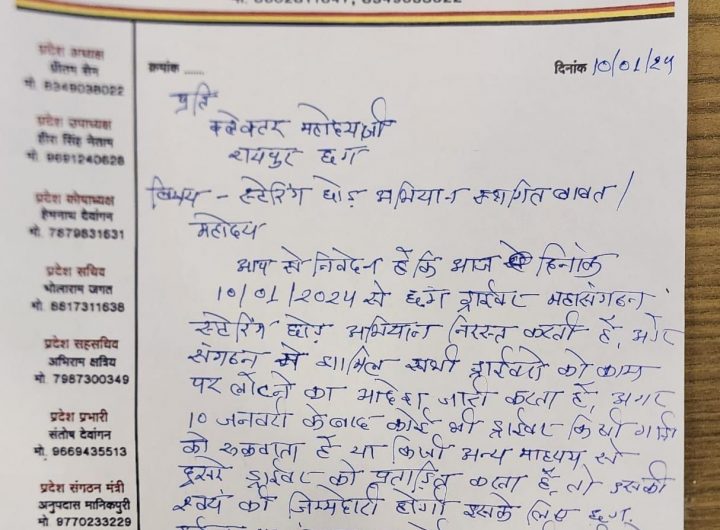 क्रमांक ......
दिनांक 10/01/24
प्रदेश अध्यक्ष
प्रीतम सेन
मो. 8349038022
प्रदेश उपाध्यक्ष
हीरा सिंह नेताम
मो. 9691240628
प्रदेश कोषाध्यक्ष
हेमनाथ देवांगन
मो. 7879831631
प्रदेश सचिव
भोलाराम जगत
मो. 8817311638
प्रदेश सहसचिव
अभिराम क्षत्रिय
मो. 7987300349
प्रदेश प्रभारी
संतोष देवांगन
मो. 9669435513
प्रदेश संगठन मंत्री
अनुपदास मानिकपुरी
मो. 9770233229
प्रति
कलेक्टर महोदयजी
रायपुर छग
विषय - स्टेरिंग छोड़ अभियान स्थगित बाबत /
महोदय
आप से निवेदन है कि आज दिनांक
10/01/2024 से छग ड्राईवर महासंगठन
स्टेरिंग छोड़ अभियान निरस्त करती है, और
संगठन से शामिल सभी ड्राईवरो को काम
पर लौटने का आदेश जारी करता है, अगर
10 जनवरी के बाद कोई भी ड्राईवर किसी गाड़ी
को रुकवाता है या किसी अन्य माध्यम से
दुसरे ड्राईवर को प्रताड़ित करता है, तो उसकी
स्वयं की जिम्मेदारी होगी इसके लिए छग.